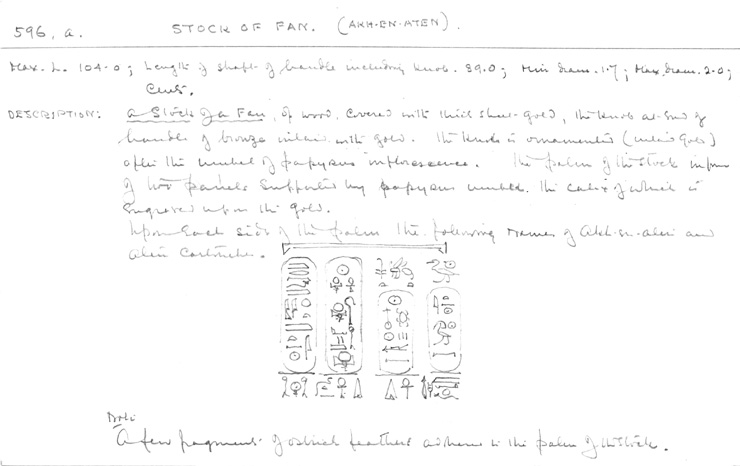 596, a. STOCK OF FAN. (AKH-EN-ATEN).
Max. L. 104.0; Length of shaft of handle including knob. 89.0; Min diam. 1.7; Max. diam. 2.0;
Cent.
DESCRIPTION: A Stock of a Fan, of wood, covered with thick sheet-gold, the knob at end of
handle of bronze inlaid with gold. The knob is ornamented (inlaid gold)
after the umbel of papyrus inflorescence. The palm of the stock in form
of two panels supported by papyrus umbel, the calix of which is
engraved upon the gold.
Upon each side of the palm the following names of Akh-en-aten and
Aten cartouches.
Note
A few fragments of ostrich feathers adhere to the palm of the stock.